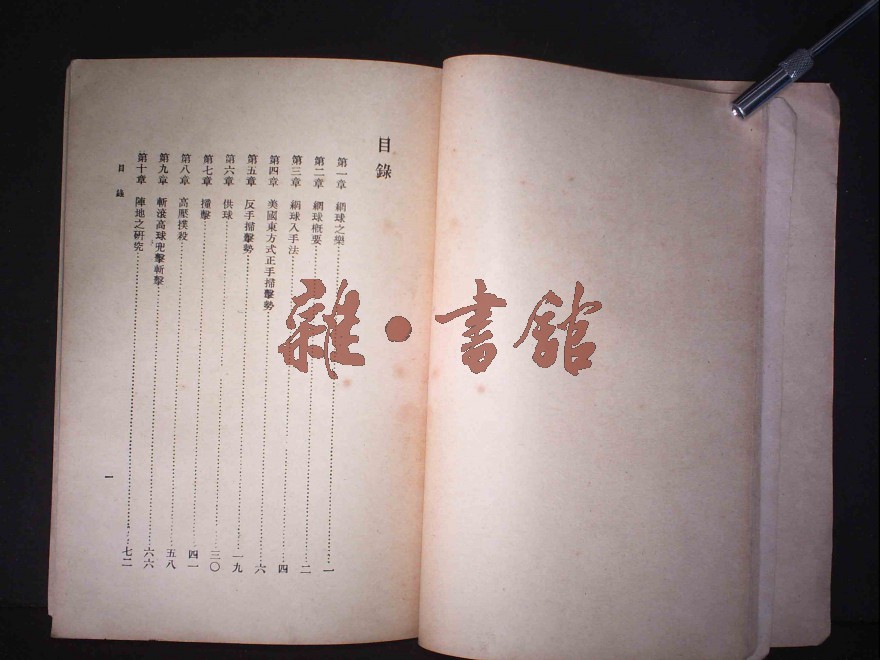 目錄
第一章 網球之樂……一
第二章 網球概要……二
第三章 網球入手法……四
第四章 美國東方式正手掃擊勢……六
第五章 反手掃擊勢……一九
第六章 供球……三〇
第七章 撞擊……四一
第八章 高壓撲殺……五八
第九章 斬滾高球兜擊斬擊……六六
第十章 陣地之研究……七二
目錄
一
雜・書館